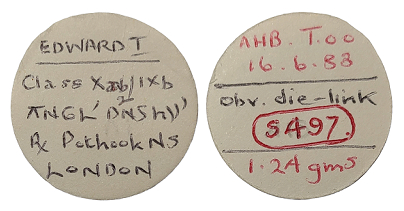 EDWARD I
Class Xab/IXb
ANGL' DNS hYB'
Rx Pothook Ns
LONDON
AHB. T.00
16.6.88
Obv. die-link
S497.
1.24 gms